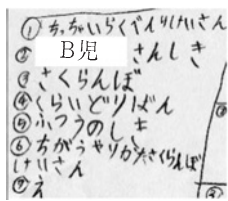 ① ちっちゃいらくべんりけいさん
② B児 さんしき
③ さくらんぼ
④ くらいどりばん
⑤ ふつうのしき
⑥ ちがうやりかたさくらんぼ
けいさん
⑦ え